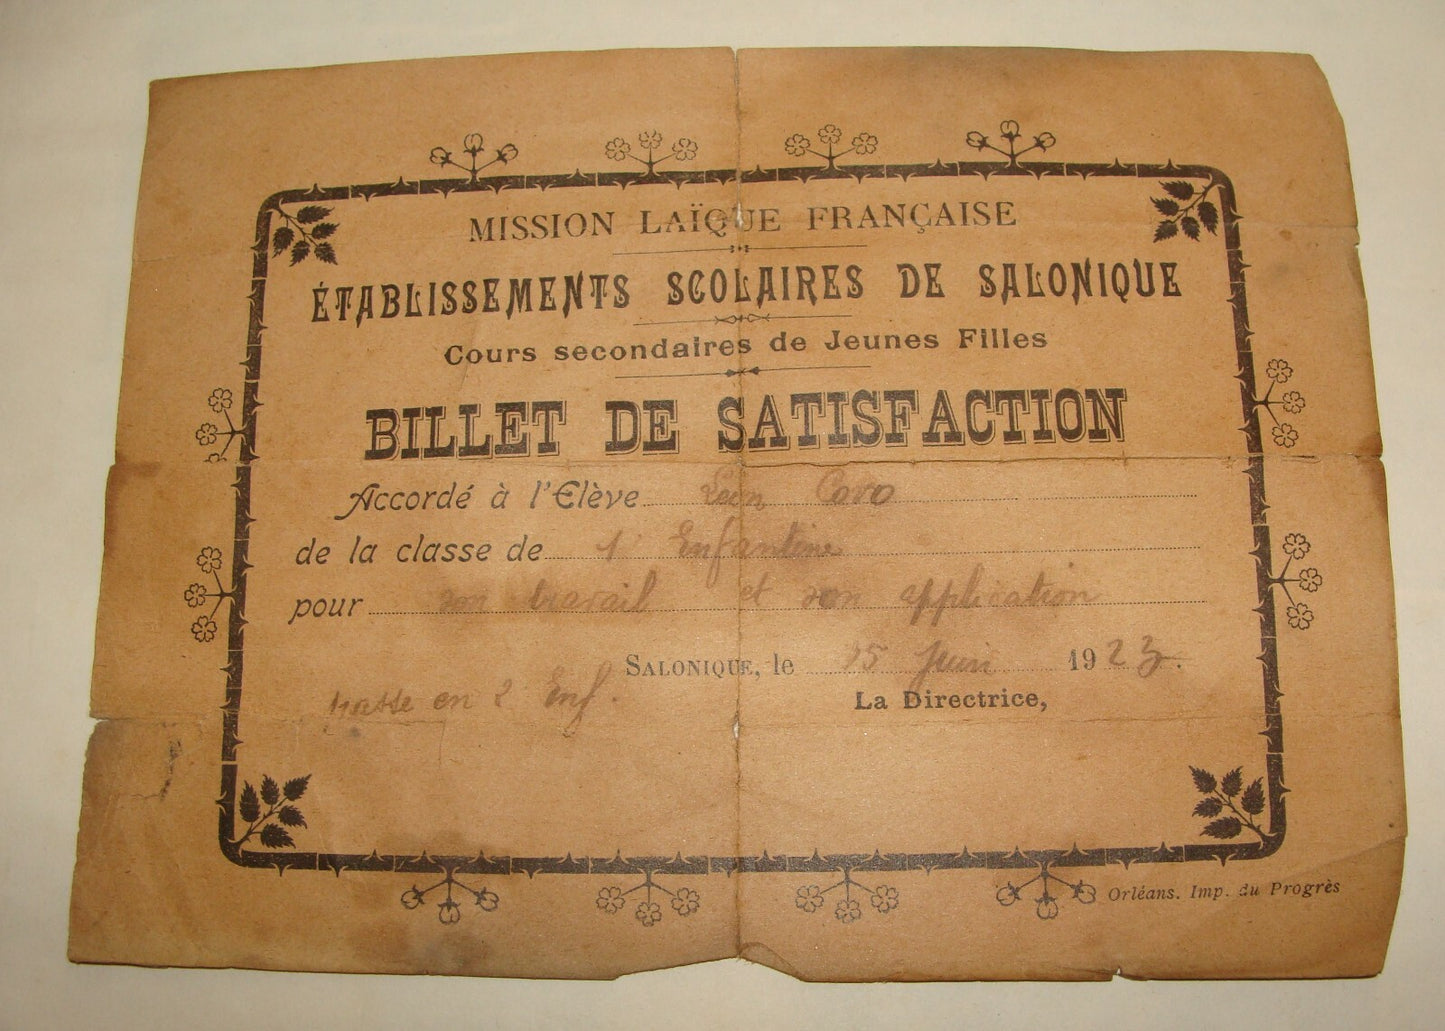 MISSION LAÏQUE FRANÇAISE
ÉTABLISSEMENTS SCOLAIRES DE SALONIQUE
Cours secondaires de Jeunes Filles
BILLET DE SATISFACTION
Accordé à l'Elève Léon Covo
de la classe de 1e Enfantine
pour son travail et son application
SALONIQUE, le 15 Juin 1923.
passe en 2 Enf.
La Directrice,
Orléans. Imp. du Progrès